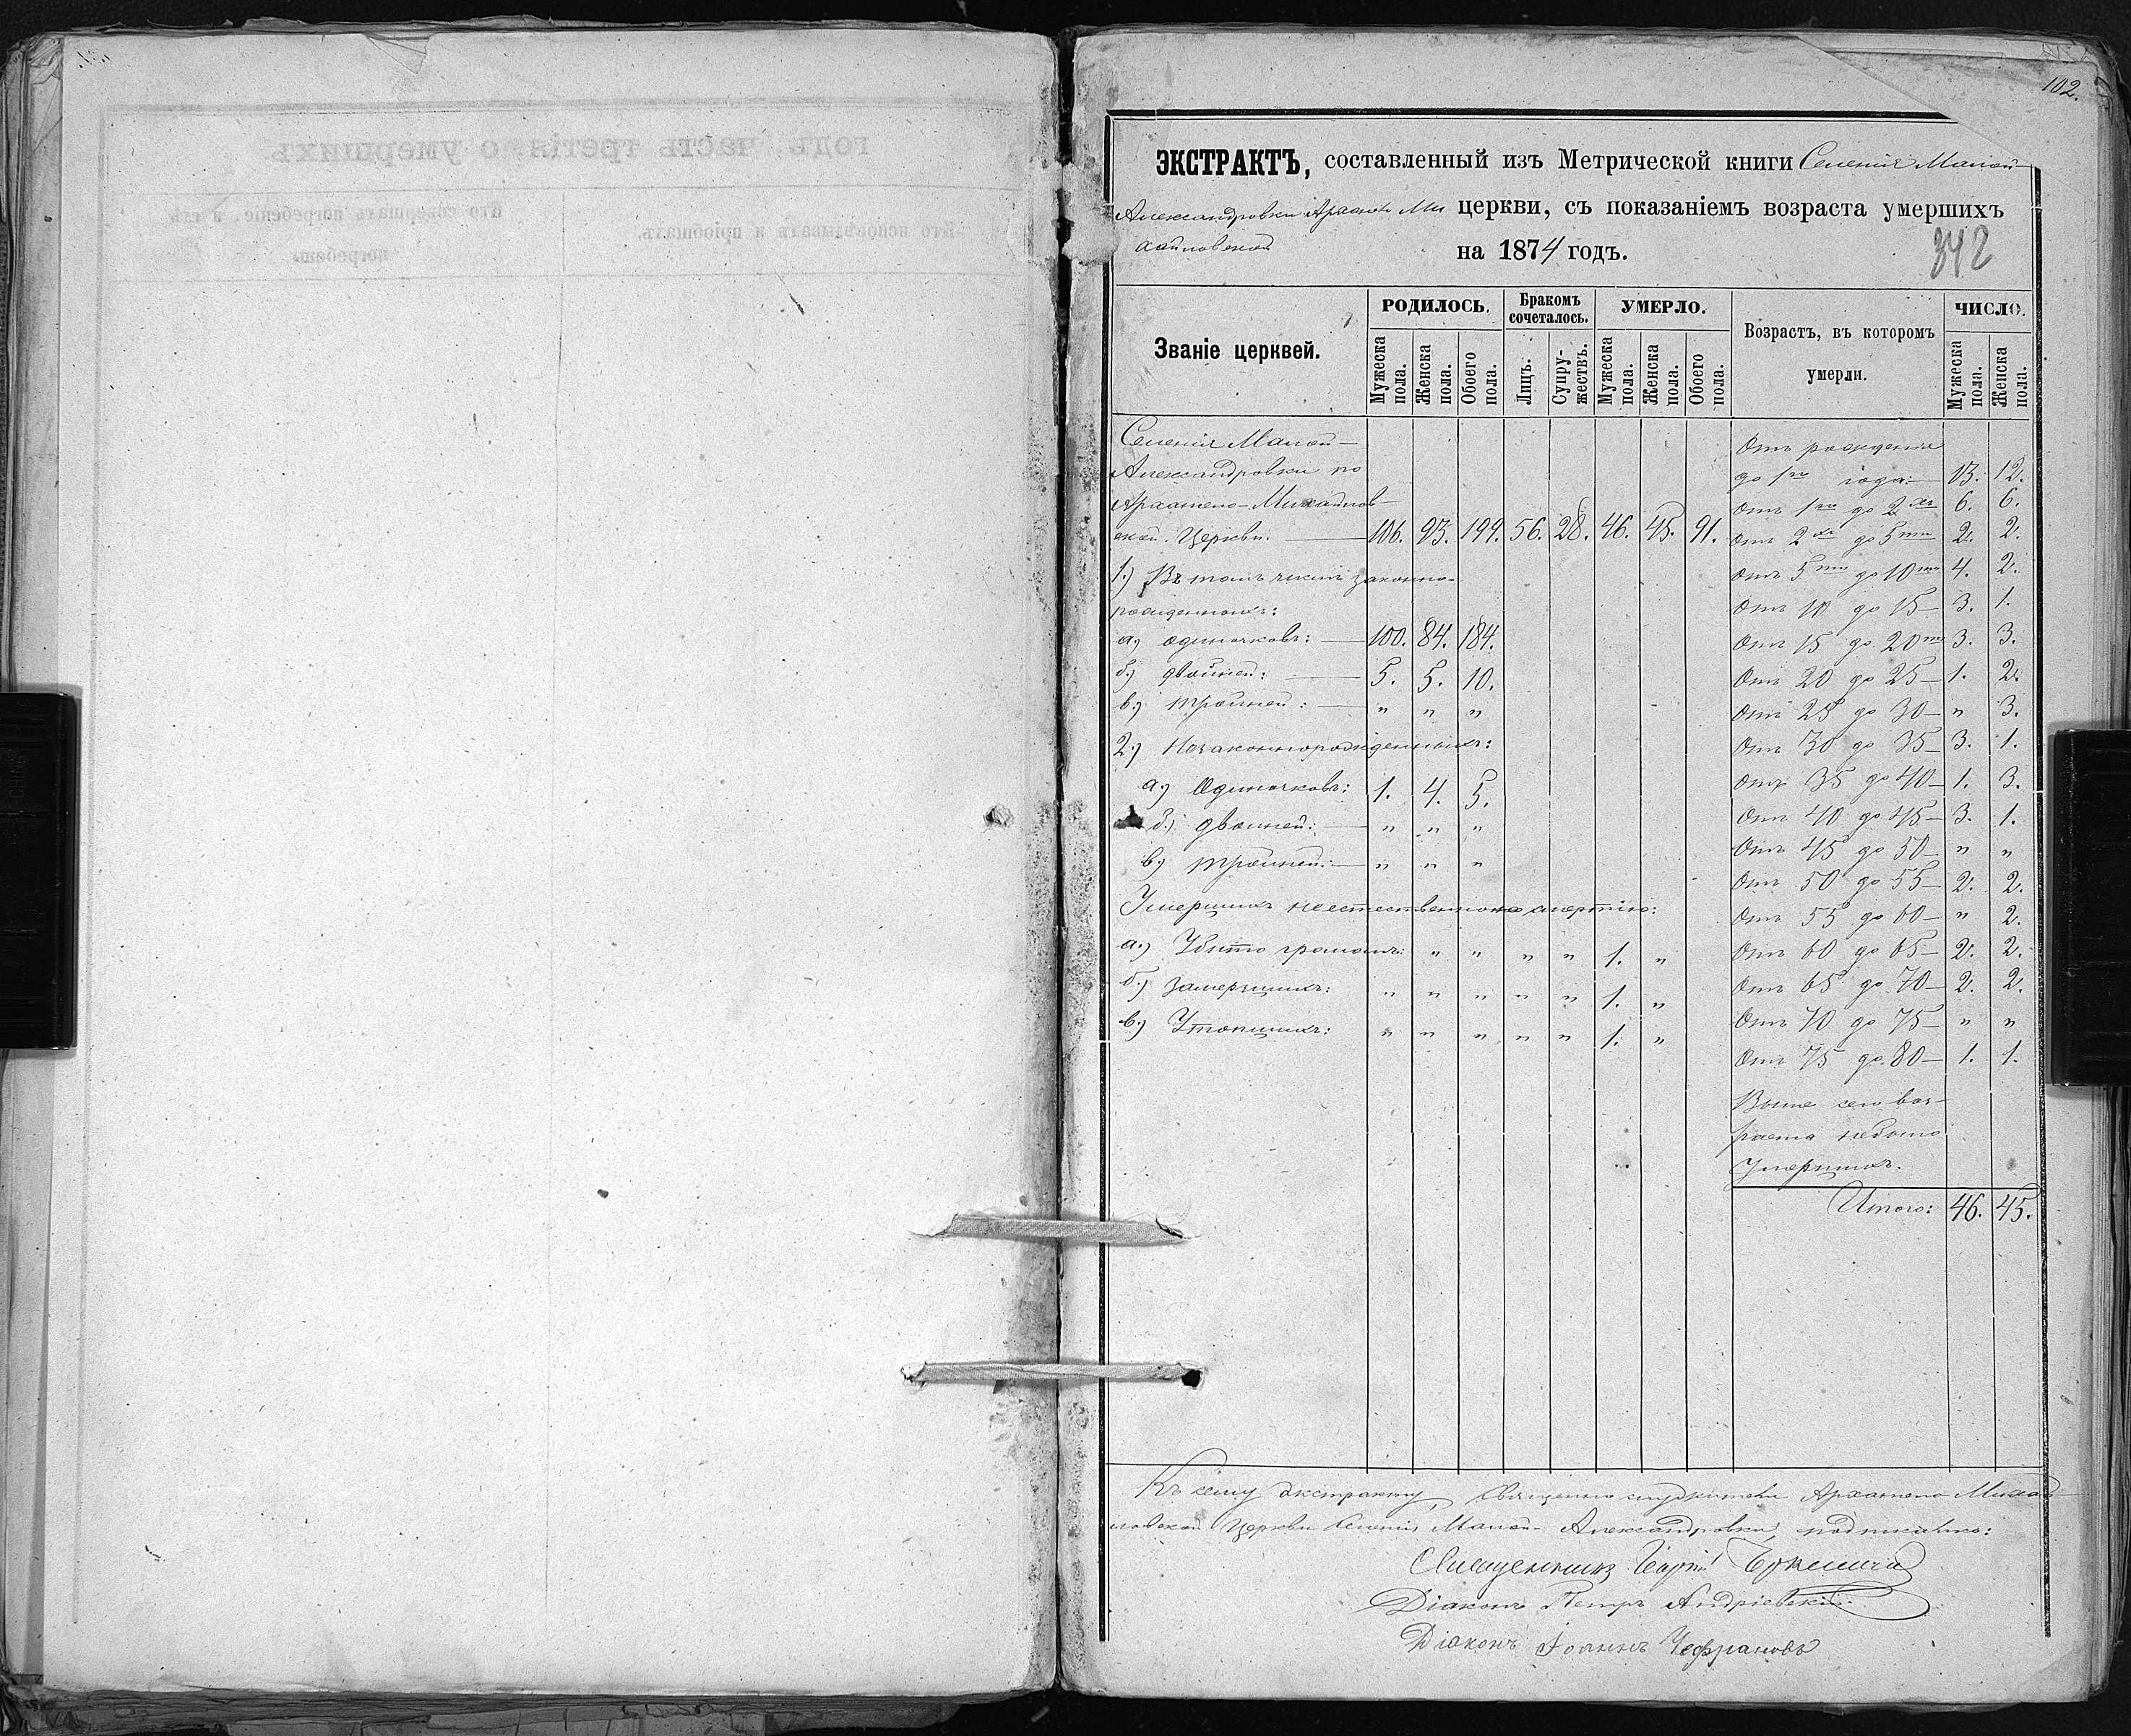 102.
ЭКСТРАКТЪ, составленный изъ Метрической книги Селенія Малой-
Александровки Арханг. Ми церкви, съ показаніемъ возраста умершихъ
хайловской на 1874 годъ.
342
Званіе церквей. РОДИЛОСЬ. Бракомъ сочеталось. УМЕРЛО. Возрастъ, въ которомъ умерли. ЧИСЛО.
Мужеска пола. Женска пола. Обоего пола. Лицъ. Супружествъ. Мужеска пола. Женска пола. Обоего пола. Мужеска пола. Женска пола.
Селенія Малой-
Александровки по
Архангело-Михайлов-
ской Церкви. 106. 93. 199. 56. 28. 46. 45. 91.
1.) Въ томъ числѣ законно-
рожденныхъ:
а) одиночковъ: 100. 84. 184.
б.) двойней: 5. 5. 10.
в.) тройней: " " "
2.) Незаконнорожденныхъ:
а.) Одиночковъ: 1. 4. 5.
б.) двойней: " " "
в) тройней: " " "
Умершихъ неестественною смертію:
а.) Убито громомъ: " " " " 1. "
б.) Замерзшихъ: " " " " " 1. "
в.) Утопшихъ: " " " " " 1. "
Отъ рожденія
до 1го года: 13. 12.
Отъ 1го до 2хъ 6. 6.
Отъ 2хъ до 5ти 2. 2.
Отъ 5ти до 10ти 4. 2.
Отъ 10 до 15 3. 1.
Отъ 15 до 20ти 3. 3.
Отъ 20 до 25 1. 2.
Отъ 25 до 30 " 3.
Отъ 30 до 35 3. 1.
Отъ 35 до 40 1. 3.
Отъ 40 до 45 3. 1.
Отъ 45 до 50 " "
Отъ 50 до 55 2. 2.
Отъ 55 до 60 " 2.
Отъ 60 до 65 2. 2.
Отъ 65 до 70 2. 2.
Отъ 70 до 75 " "
Отъ 75 до 80 1. 1.
Выше сего воз-
раста небыло
Умершихъ.
Итого: 46. 45.
Къ сему экстракту, Священно служители Архангело Михай-
ловской Церкви Селенія Малой-Александровки, подписались:
Священникъ Георгій
Діаконъ Петръ Андріевскій
Діаконъ Іоаннъ Чефрановъ